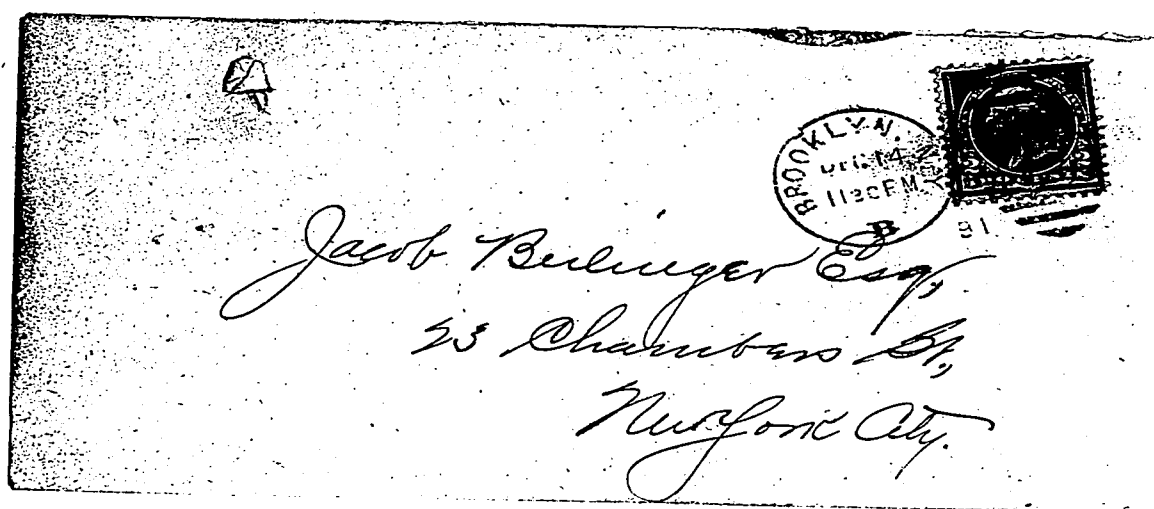 BROOKLYN, N.Y.
DEC 14
1130 PM
B
91.
Jacob Esq,
23 Chambers St.,
New York City.